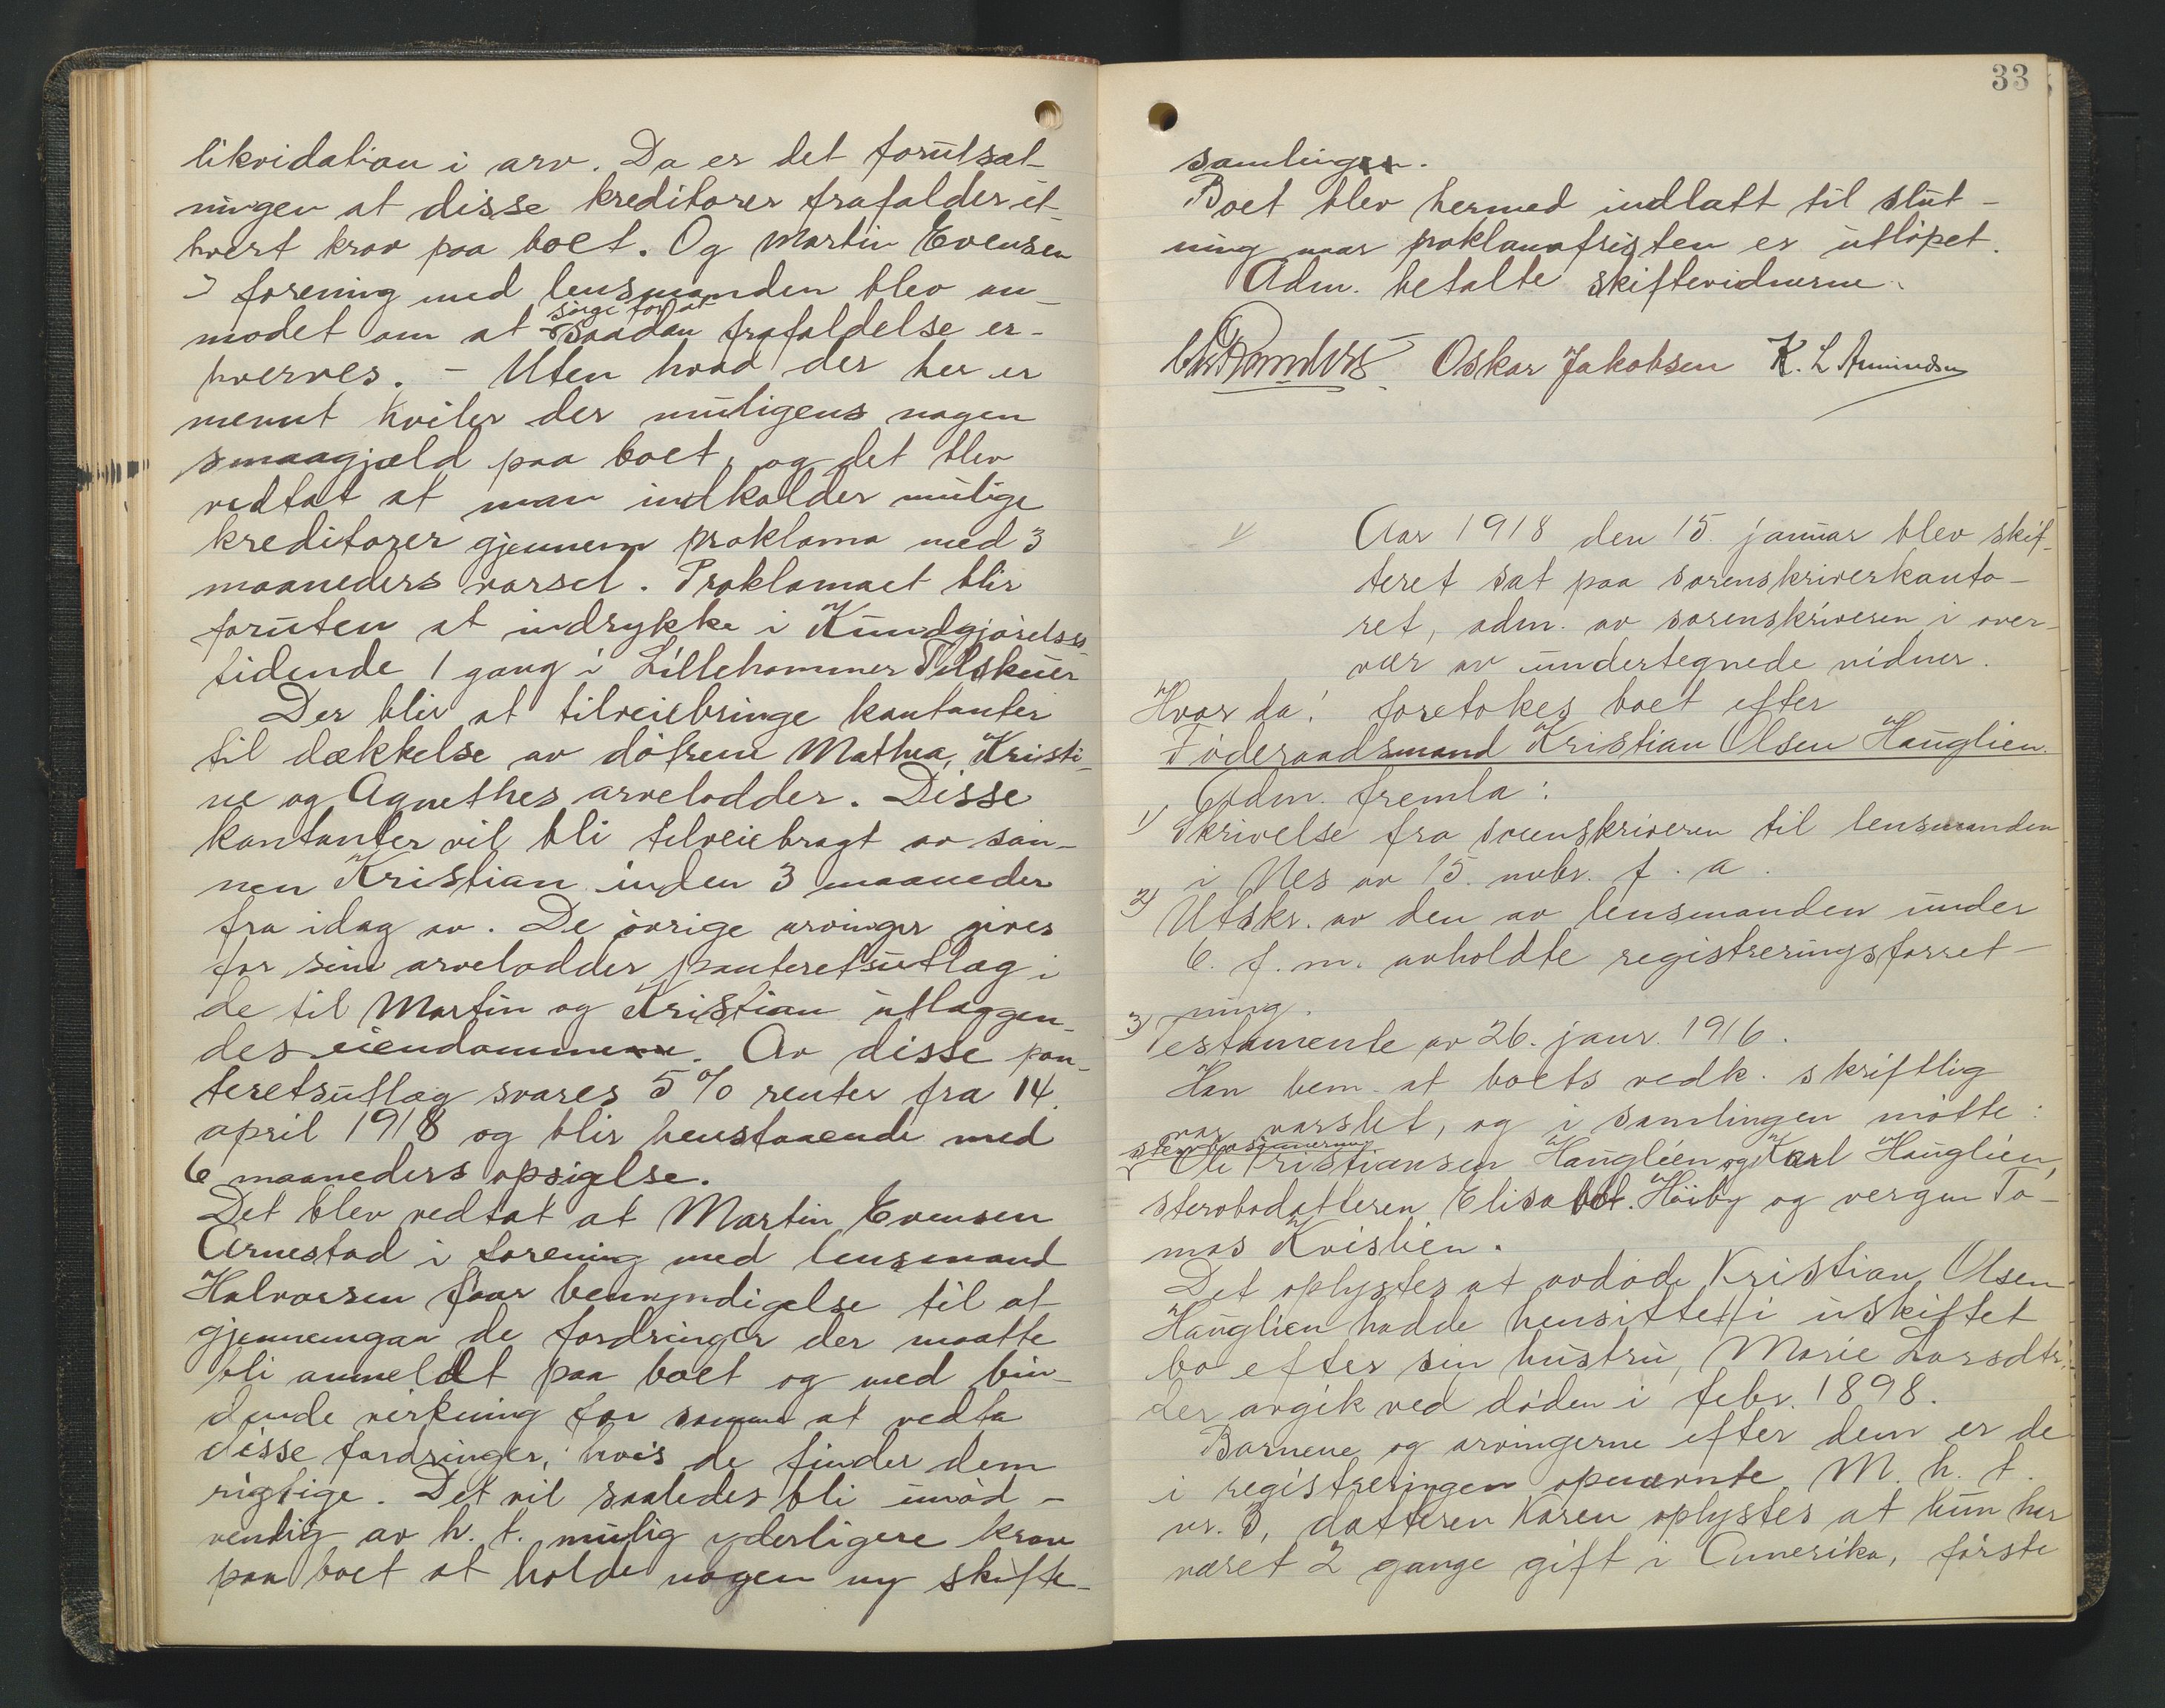 likvidation i arv. Da er det forutsæt-
ningen at disse kreditorer frafalder et-
hvert krav paa boet. Og Martin Evensen
i forening med lensmanden blev an-
sørge for at
modet om at saadan frafaldelse er-
hverves. - Uten hvad der her er
nævnt hviler der muligens nogen
smaagjæld paa boet, og det blev
vedtat at man indkalder mulige
kreditorer gjennem proklama med 3
maaneders varsel. Proklamaet blir
foruten at indrykke i Kundgjørelses-
tidende 1 gang i Lillehammer Tilskuer
Der blir at tilveiebringe kontanter
til dækkelse av døtrene Mathea, Kristi-
ne og Agnethes arvelodder. Disse
kontanter vil bli tilveiebragt av søn-
nen Kristian inden 3 maaneder
fra idag av. De øvrige arvinger gives
for sine arvelodder panteretsutlæg i
de til Martin og Kristian utlæggen-
des eiendommene. Av disse pan-
teretsutlæg svares 5% renter fra 14.
april 1918 og blir henstaaende med
6 maaneders opsigelse.
Det blev vedtat at Martin Evensen
Arnestad i forening med lensmand
Halvorsen faar bemyndigelse til at
gjennemgaa de fordringer der maatte
bli anmeldt paa boet og med bin-
dende virkning for samme at vedta
disse fordringer, hvis de finder dem
rigtige. Det vil saaledes bli unød-
vendig av h. t. mulig yderligere krav
paa boet at holde nogen ny skifte-
33
samlingen.
Boet blev hermed indlatt til slut-
ning naar proklamafristen er utløpet.
Adm. betalte skiftevidnerne.
Oskar Jakobsen K. L Amundsen
Aar 1918 den 15. januar blev skif-
teret sat paa sorenskriverkonto-
ret, adm. av sorenskriveren i over-
vær av undertegnede vidner.
Hvor da: foretokes boet efter
Føderaadsmand Kristian Olsen Hauglien.
Adm. fremla:
1) Skrivelse fra sorenskriveren til lensmanden
i Nes av 15. novbr. f. a.
2) Utskr. av den av lensmanden under
6. f. m. avholdte registreringsforret-
ning.
3) Testamente av 26. janr. 1916.
Han bem. at boets vedk. skriftlig
var varslet, og i samlingen møtte:
stervbosønnerne
Ole Kristiansen Hauglien og Karl Hauglien,
stervbodatteren Elisabet Høiby og vergen To-
mas Kvislien.
Det oplystes at avdøde Kristian Olsen
Hauglien hadde hensittet i uskiftet
bo efter sin hustru, Marie Larsdtr.
der avgik ved døden i febr. 1898.
Barnene og arvingerne efter dem er de
i registreringen opnævnte. M. h. t.
nr. 3, datteren Karen oplystes at hun har
været 2 gange gift i Amerika, første